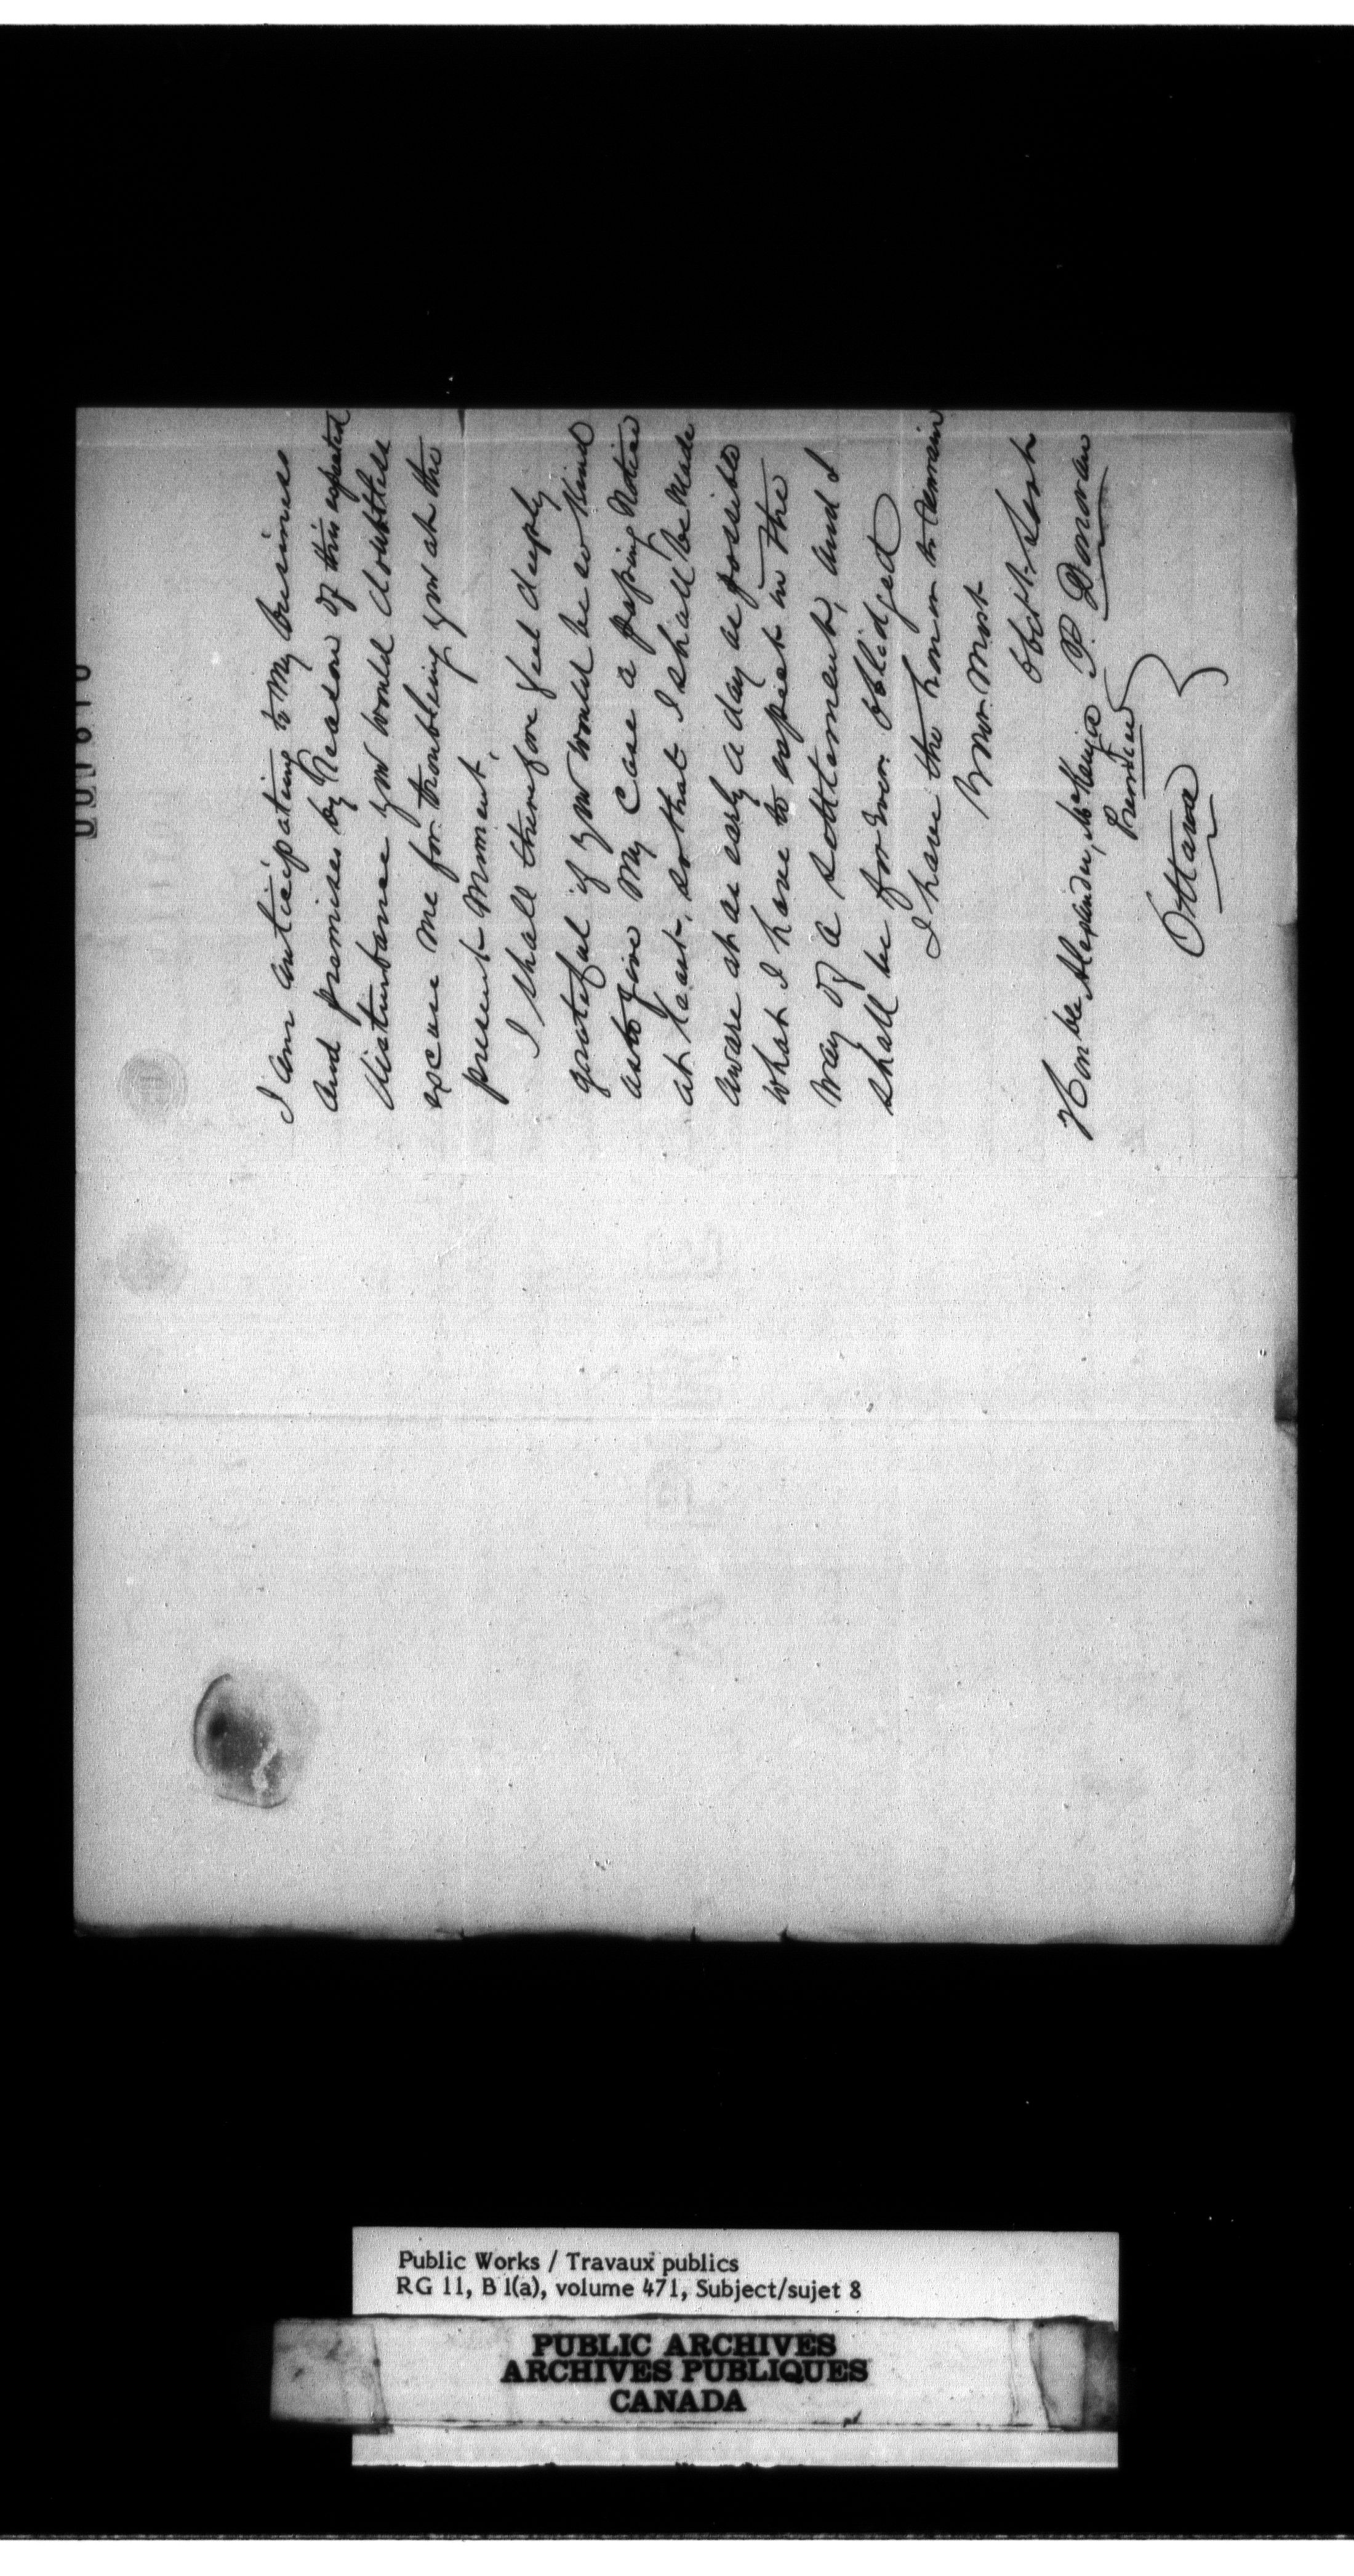 I am anticipating to My business
and premises by Reason of this expected
disturbance you would doubtless
excuse me for troubling you at the
present Moment.
I shall therefore feel deeply
grateful if you would be so kind
as to give My Case a passing Notice
at least, so that I shall be Made
aware at as early a day as possible
what I have to expect in the
way of a settlement, and I
shall be for Ever Oblidged
I have the honor to remain
Your Most
Obdt Servt
P. Donovan
Honble Alexander McKenzie
Premier
Ottawa
Public Works / Travaux publics
RG 11, B 1(a), volume 471, Subject/sujet 8
PUBLIC ARCHIVES
ARCHIVES PUBLIQUES
CANADA